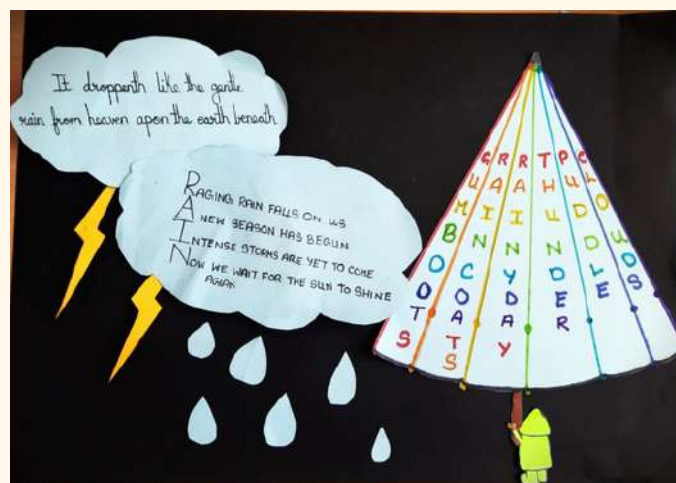 It droppenth like the gentle
rain from heaven apon the earth beneath
RAGING RAIN FALLS ON US
A NEW SEASON HAS BEGUN
INTENSE STORMS ARE YET TO COME
NOW WE WAIT FOR THE SUN TO SHINE
AGAIN
GUMBOOTS
RAINCOATS
RAINYDAY
THUNDER
PUDDLE
CLOUDS